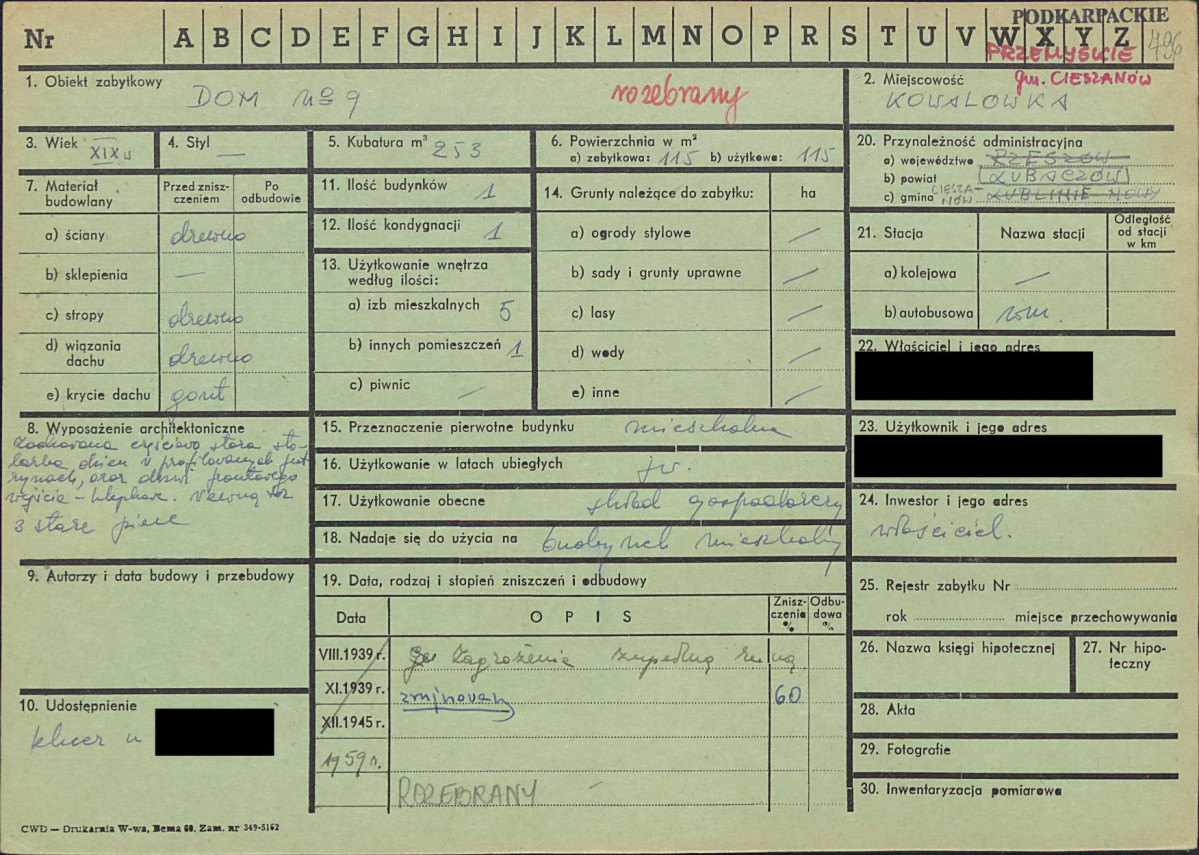 PODKARPACKIE
Nr A B C D E F G H I J K L M N O P R S T U V W X Y Z 496
PRZEMYSKIE
gm. CIESZANÓW
1. Obiekt zabytkowy
DOM no 9 rozebrany
2. Miejscowość
KOWALÓWKA
3. Wiek XIX w
4. Styl —
5. Kubatura m³ 253
6. Powierzchnia w m²
a) zabytkowa: 115 b) użytkowa: 115
20. Przynależność administracyjna
a) województwo RZESZÓW
b) powiat LUBACZÓW
c) gmina CIESZANÓW LUBLINIE NOWY
7. Materiał budowlany
Przed zniszczeniem
Po odbudowie
a) ściany drewno
b) sklepienia —
c) stropy drewno
d) wiązania dachu drewno
e) krycie dachu gont
11. Ilość budynków 1
12. Ilość kondygnacji 1
13. Użytkowanie wnętrza według ilości:
a) izb mieszkalnych 5
b) innych pomieszczeń 1
c) piwnic —
14. Grunty należące do zabytku: ha
a) ogrody stylowe —
b) sady i grunty uprawne —
c) lasy —
d) wody —
e) inne —
21. Stacja
Nazwa stacji
Odległość od stacji w km
a) kolejowa —
b) autobusowa
22. Właściciel i jego adres
8. Wyposażenie architektoniczne
Zachowana częściowo stara sto-
larka okien w profilowanych
oraz drzwi frontowego
wejścia – klepkowe.
3 stare piece
15. Przeznaczenie pierwotne budynku mieszkalne
16. Użytkowanie w latach ubiegłych jw.
17. Użytkowanie obecne skład gospodarczy
18. Nadaje się do użycia na budynek mieszkalny
23. Użytkownik i jego adres
24. Inwestor i jego adres
właściciel.
9. Autorzy i data budowy i przebudowy
19. Data, rodzaj i stopień zniszczeń i odbudowy
Data
OPIS
Zniszczenia %
Odbudowa %
VIII.1939 r. Zagrożenie zupełną ruiną
XI.1939 r. zrujnowany 60
XII.1945 r.
1959 r.
ROZEBRANY —
25. Rejestr zabytku Nr
rok miejsce przechowywania
26. Nazwa księgi hipotecznej
27. Nr hipoteczny
10. Udostępnienie
klucz u
28. Akta
29. Fotografie
30. Inwentaryzacja pomiarowa
CWD — Drukarnia W-wa, Bema 60. Zam. nr 349-5162